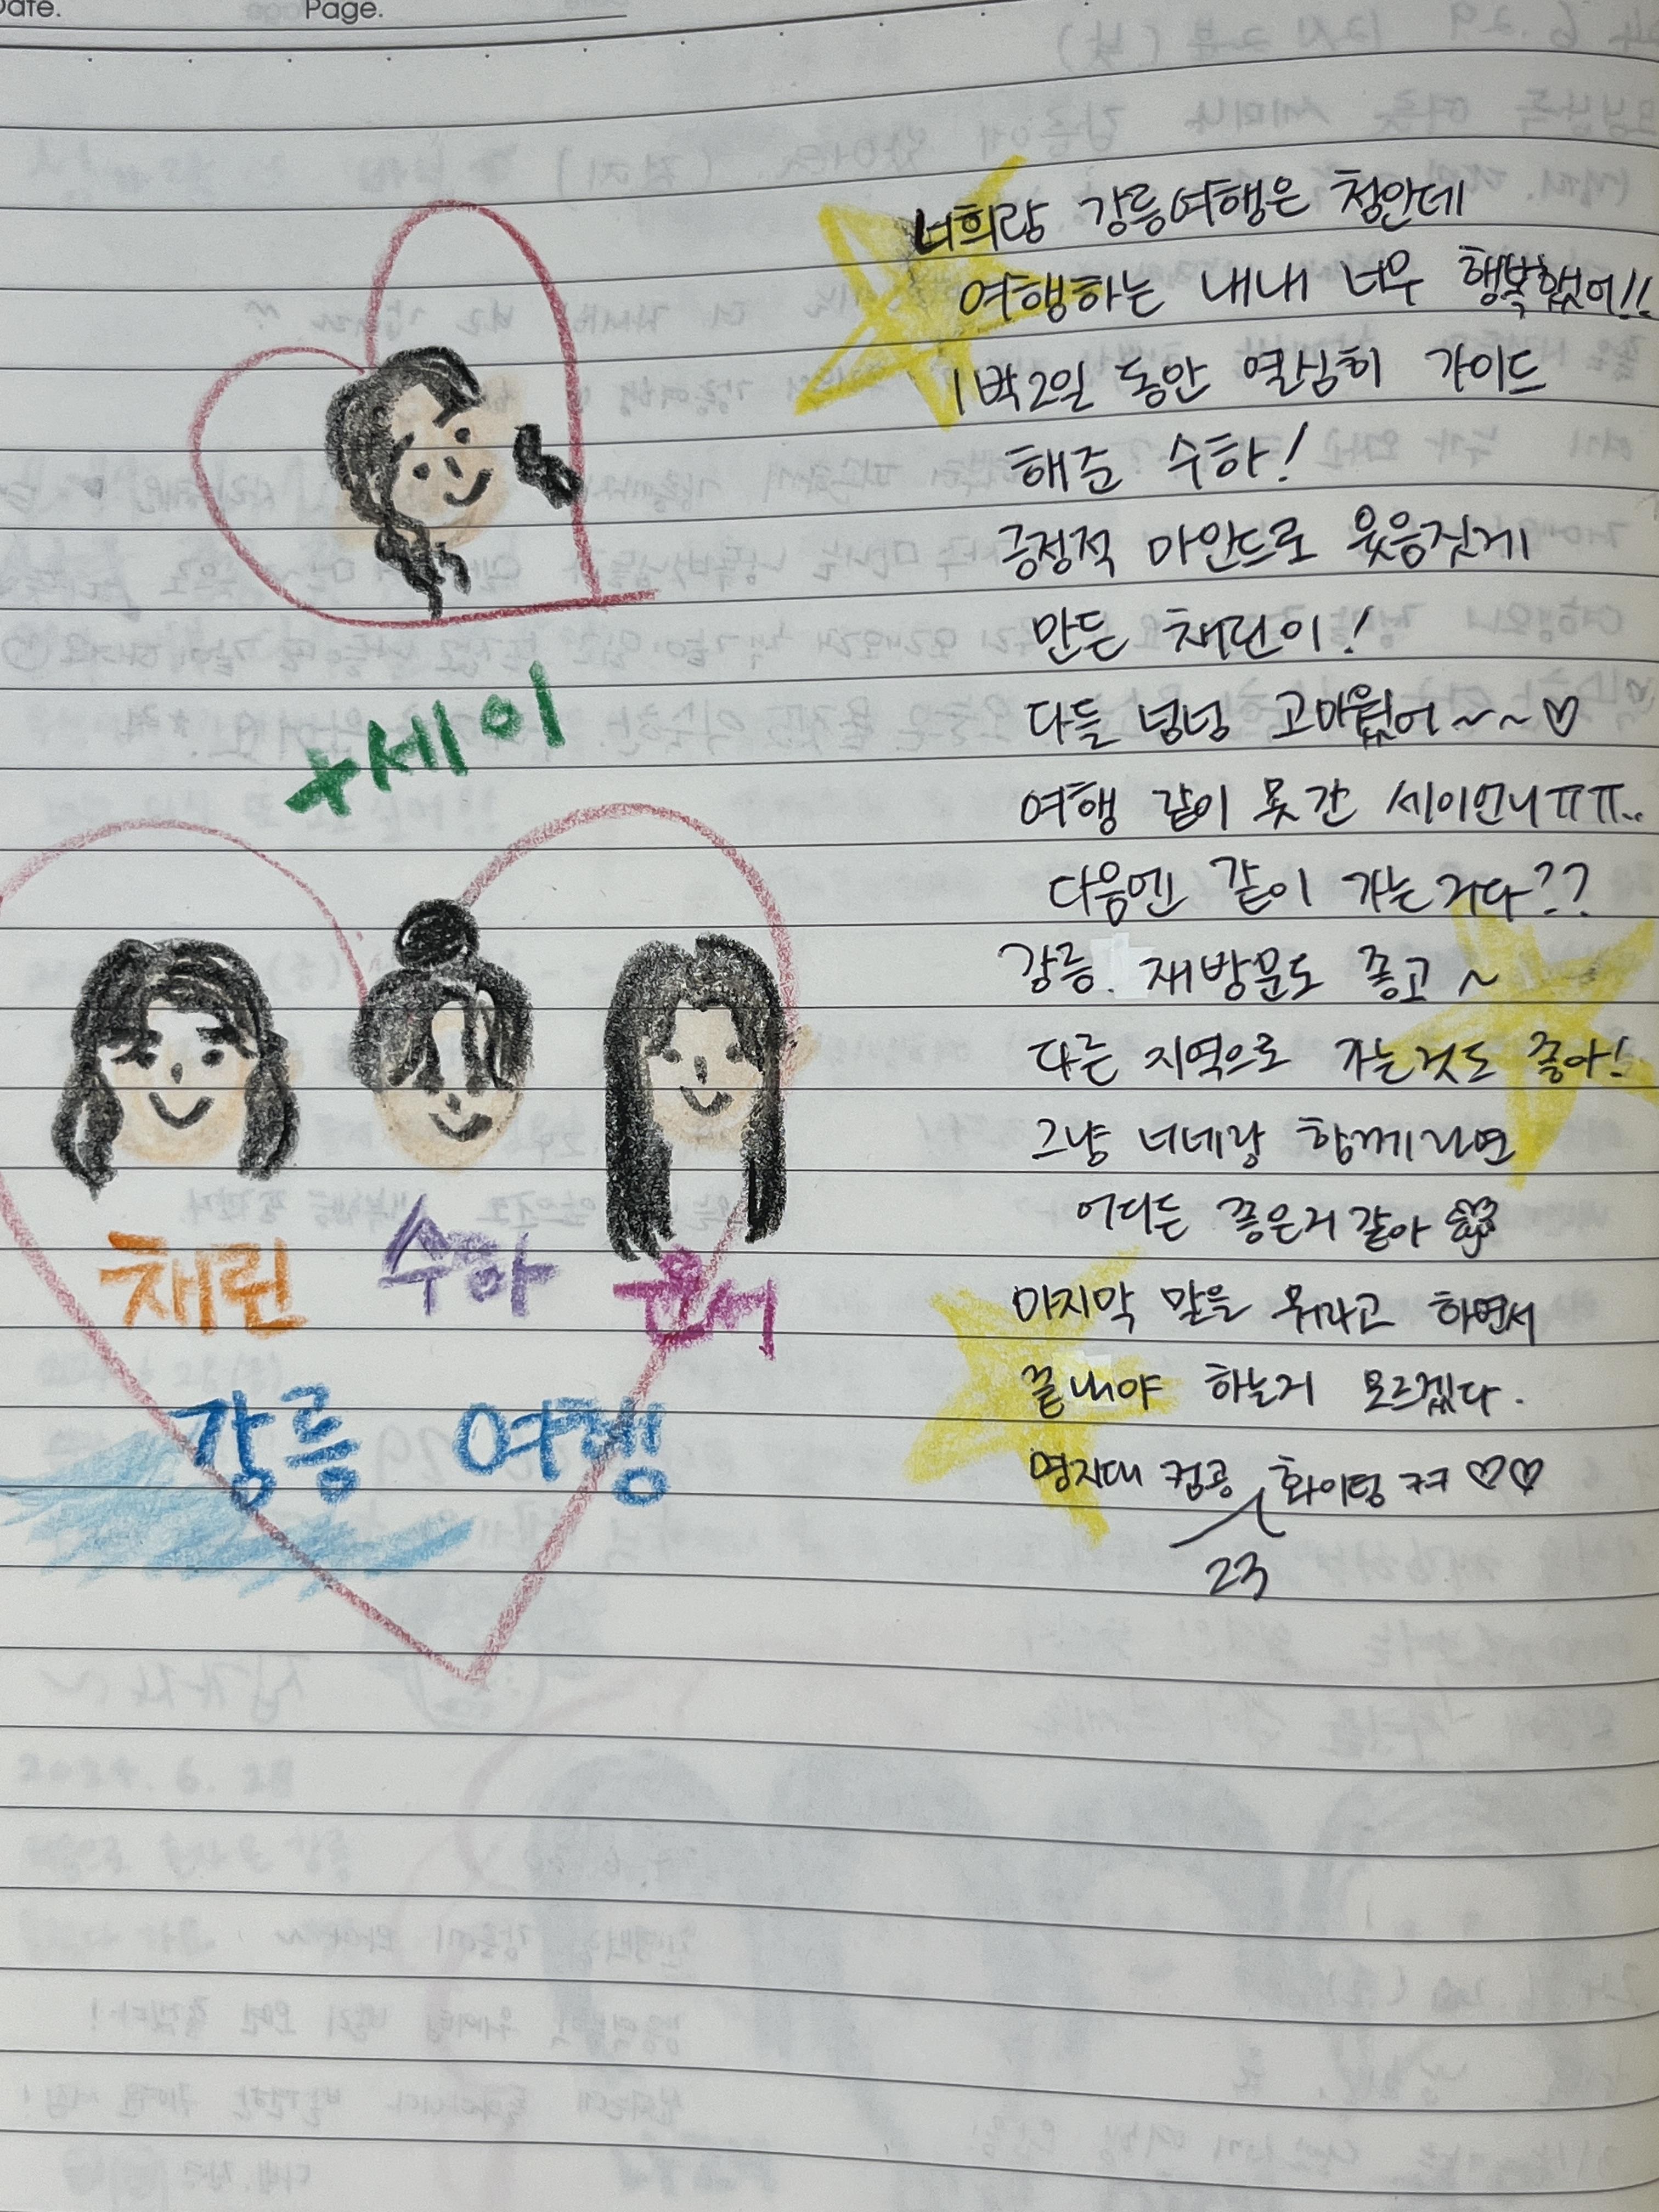 Date.
Page.
너희랑 강릉여행은 첨안데
여행하는 내내 너무 행복했어!!
1박2일 동안 열심히 가이드
해준 수하!
긍정적 마인드로 웃음짓게
만든 채린이!
다들 넘넘 고마웠어~~♡
여행 같이 못간 세이언니ㅠㅠ..
다음엔 같이 가는거다??
강릉. 재방문도 좋고~
다른 지역으로 가는것도 좋아!
그냥 너네랑 함께라면
어디든 좋은거 같아
마지막 말을 뭐라고 하면서
끝내야 하는거 모르겠다.
명지대 컴공 화이팅 ㅋㅋ ♡♡
23
+세이
채린 수하 윤서
강릉 여행